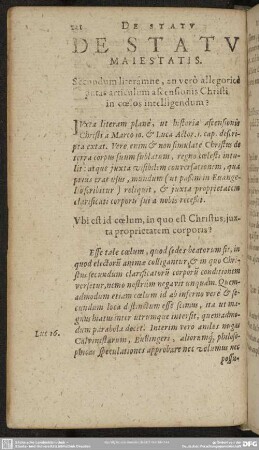 DE STATV
DE STATV
MAIESTATIS.
Secundum literamne, an verò allegoricè
putas articulum ascensionis Christi
in cœlos intelligendum?
IVxta literam planè, ut historia ascensionis
Christi à Marco in, & Luca Actor. 1. cap. descri-
pta extat. Vere enim & non simulate Christus de
terra corpus suum sublatum, regno cœlesti intu-
lit: atque juxta visibilem conversationem, qua
prius erat usus, mundum (ut passim in Evange-
listis
) reliquit, & juxta proprietatem
clarificati corporis sui à nobis recessit.
Vbi est id cœlum, in quo est Christus, jux-
ta proprietatem corporis?
Esse tale cœlum, quod sedes beatorum sit, in
quod electorum animæ colligantur, & in quo Chri-
stus secundum clarificati corporis conditionem
versetur, nemo nostrûm negavit unquam. Quem-
admodum etiam cœlum id ab inferno verè & se-
cundum loca distinctum esse scimus, ita ut ma-
gnus hiatus inter utrumque intersit, quemadmo-
Luc 16.
dum parabola docet. Interim vero aniles nugas
Calvinistarum, Bullingeri, aliorumq́, philoso-
phicas speculationes approbare nec volumus nec
possu-